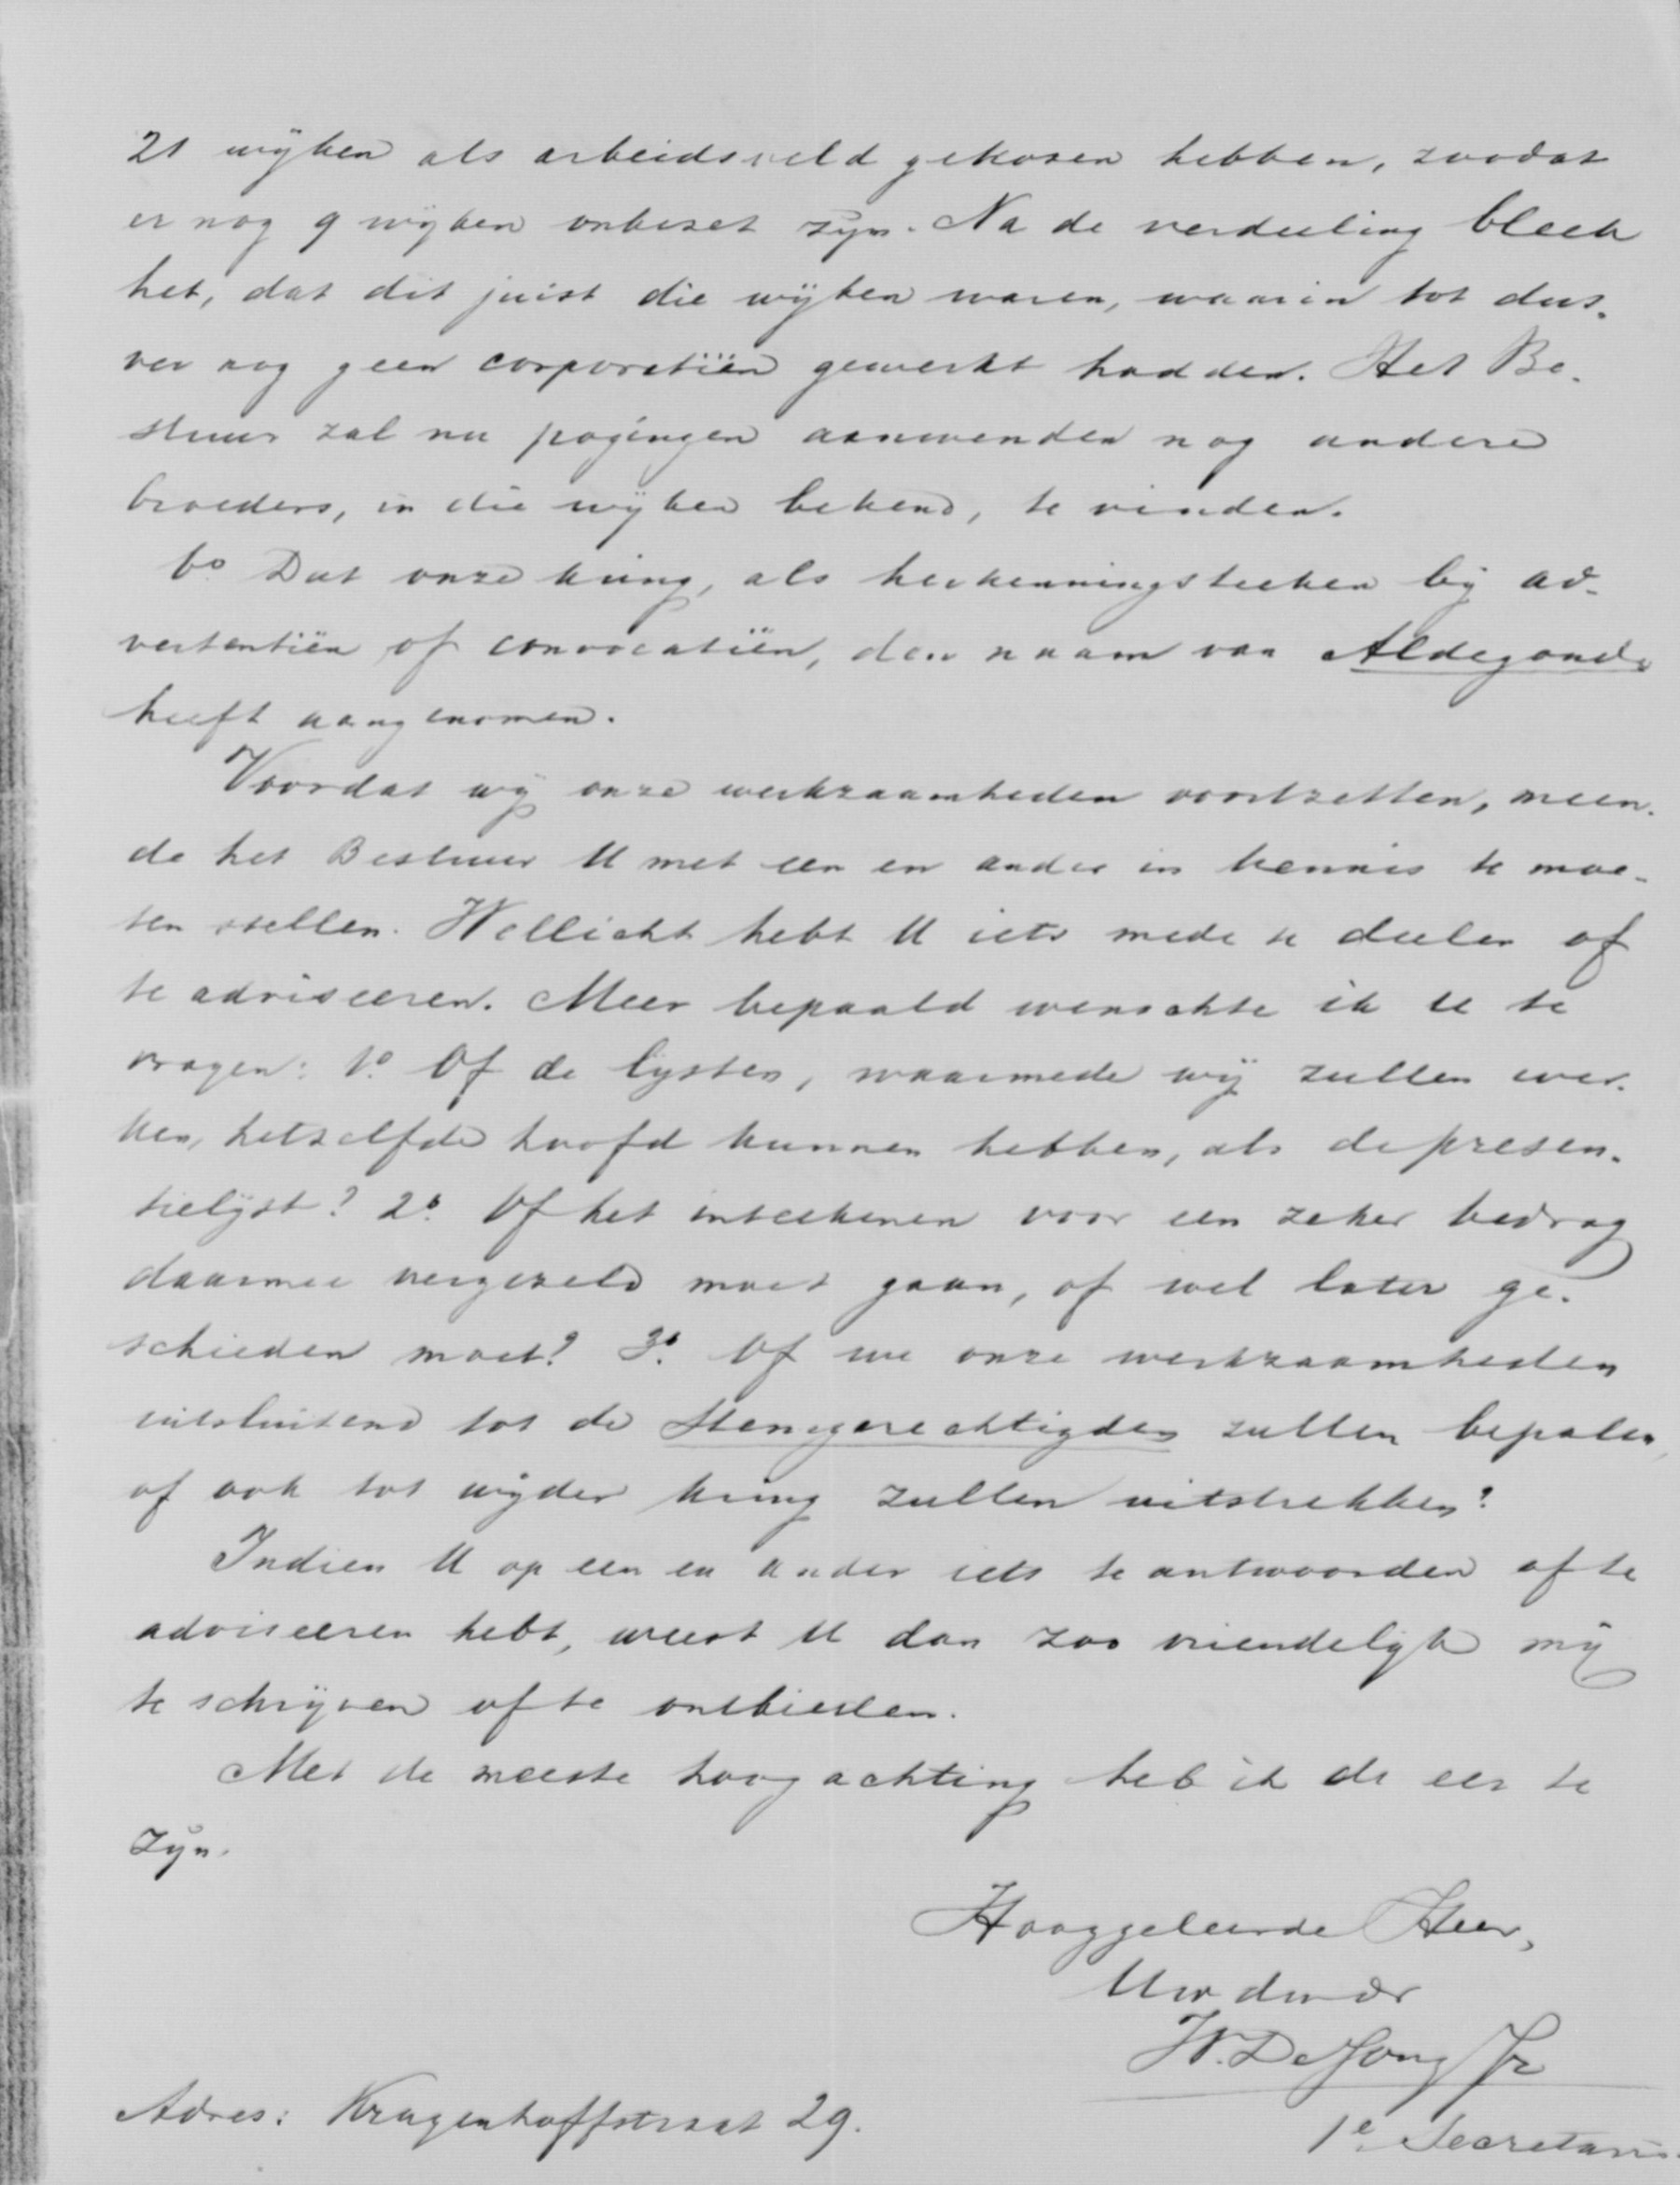 21 wijken als arbeidsveld gekozen hebben, zoodat
er nog 9 wijken onbezet zijn. Na de verdeeling bleek
het, dat dit juist die wijken waren, waarin tot dus-
ver nog geen corporatiën gewerkt hadden. Het Be-
stuur zal nu pogingen aanwenden nog andere
broeders, in die wijken bekend, te vinden.
6o Dat onze kring, als herkenningsteeken bij ad-
vertentiën of convocatiën, den naam van Aldegonde
heeft aangenomen.
Voordat wij onze werkzaamheden voortzetten, meen-
de het Bestuur U met een en ander in kennis te moe-
ten stellen. Wellicht hebt U iets mede te deelen of
te adviseeren. Meer bepaald wenschte ik U te
vragen: 1o. Of de lijsten, waarmede wij zullen wer-
ken, hetzelfde hoofd kunnen hebben, als de presen-
tielijst? 2o. Of het inteekenen voor een zeker bedrag
daarmee vergezeld moet gaan, of wel later ge-
schieden moet? 3o. Of we onze werkzaamheden
uitsluitend tot de Stemgerechtigden zullen bepalen,
of ook tot wijder kring zullen uitstrekken?
Indien U op een en ander iets te antwoorden of te
adviseeren hebt, weest U dan zoo vriendelijk mij
te schrijven of te ontbieden.
Met de meeste hoogachting heb ik de eer te
zijn.
Hooggeleerde Heer,
Uw dw dr
W. De Jong Jr
Adres: Kragenhoffstraat 29.
1e Secretaris.